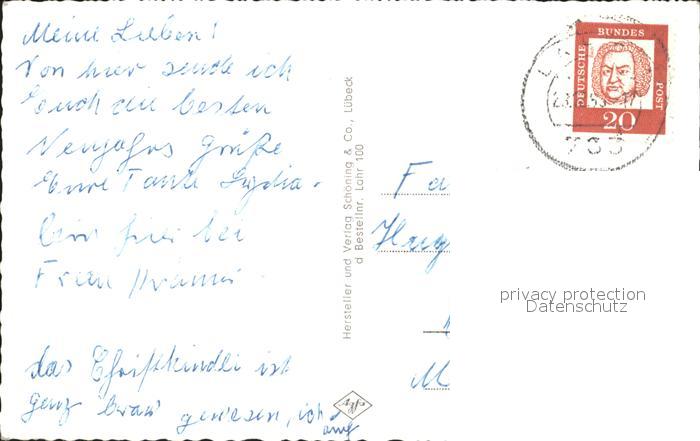 Meine Lieben!
Von hier sende ich
Euch die besten
Neujahrs Grüße
Eure Tante Lydia.
bin hier bei
Frau
das Christkindli ist
ganz brav gewesen, ich
auch
Hersteller und Verlag Schöning & Co., Lübeck
Bestellnr. Lahr 100
Fa
Hug
M
DEUTSCHE BUNDES POST
20
763
privacy protection
Datenschutz